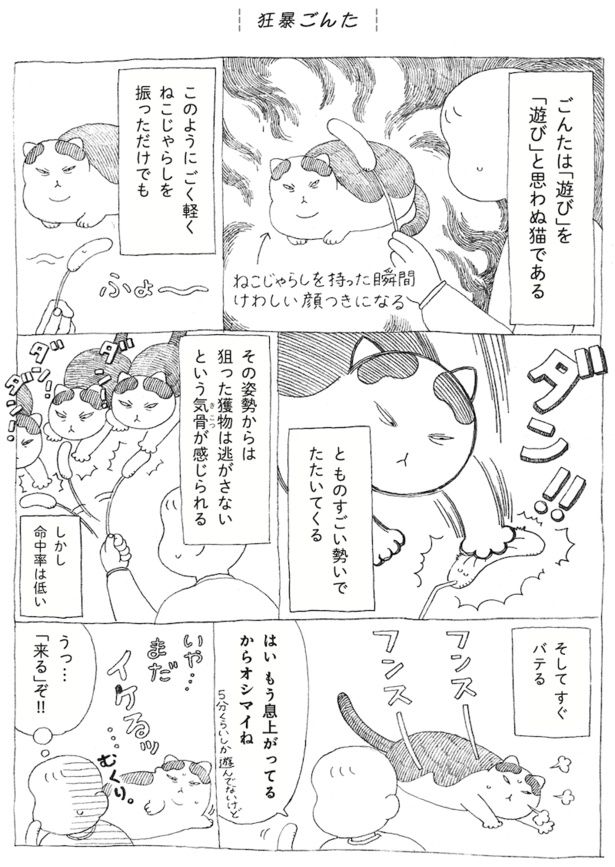 狂暴ごんた
ごんたは「遊び」を
「遊び」と思わぬ猫である
ねこじゃらしを持った瞬間
けわしい顔つきになる
このように ごく軽く
ねこじゃらしを
振っただけでも
ふよ〜
ダン!!
とものすごい勢いで
たたいてくる
その姿勢からは
狙った獲物は逃がさない
という気骨が感じられる
きこつ
ダン!!
ダン!
ダン!!
しかし
命中率は低い
そして すぐ
バテる
フンスー
フンスー
はい もう息上がってる
からオシマイね
5分くらいしか遊んでないけど
いや…
まだ
イケるッ
……
むくり。
うっ…
「来る」ぞ!!